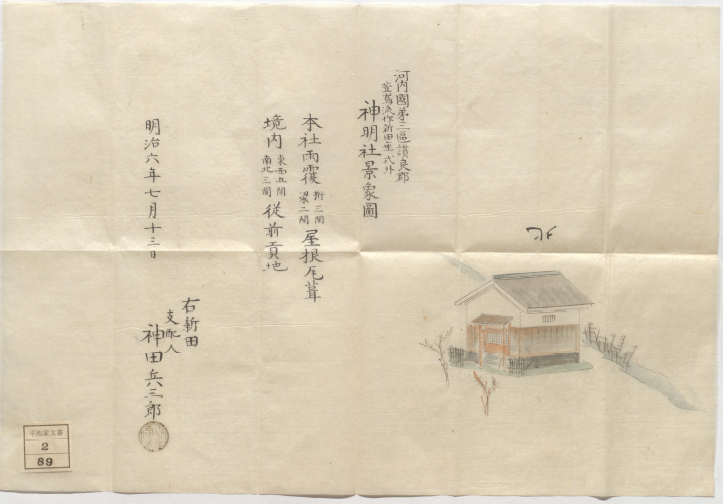 河内國第三區讃良郡
深作新田産式外
神明社景象圖
本社雨覆 桁三間 梁二間 屋根瓦葺
境内 東西五間 南北三間 從前貢地
明治六年七月十三日
右新田
支配人
神田兵三郎
北
平池家文書
2
89